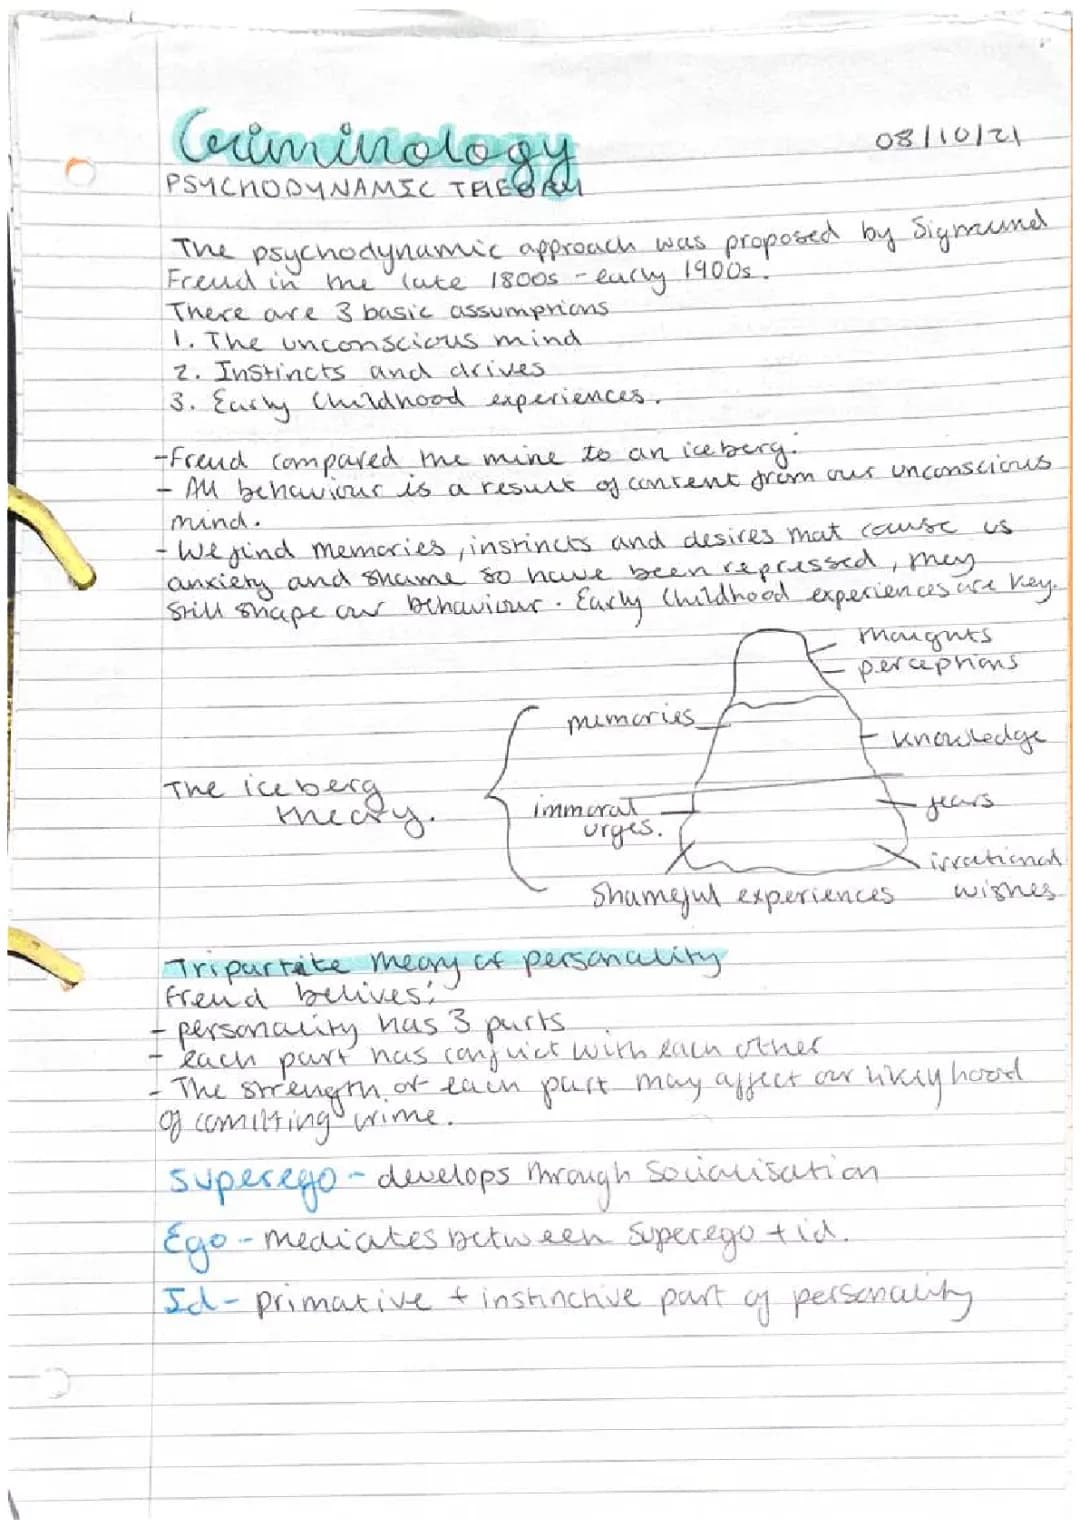 Criminology
08/10/21
PSYCHODYNAMIC THEORY
The psychodynamic approach was proposed by Sigmund
Freud in the late 1800s - early 1900s.
There are 3 basic assumptions
1. The unconscious mind
2. Instincts and drives
3. Early Childhood experiences.
- Freud compared the mine to an iceberg.
- All behaviour is a result of content from our unconscious
mind.
- We find memories, instincts and desires that cause us
anxiety and shame so have been repressed, they
still shape our behaviour. Early Childhood experiences are key.
thoughts
perceptions
memories
knowledge
The iceberg
theory.
immoral
urges.
fears
irrational
wishes
Shameful experiences
Tripartite theory of personality
Freud belives:
- personality has 3 parts
- each part has conflict with each other
- The strength of each part may affect our likely hood
of comitting crime.
Superego - develops through Socialisation
Ego - mediates between Superego + id.
Id - primative + instinctive part of personality